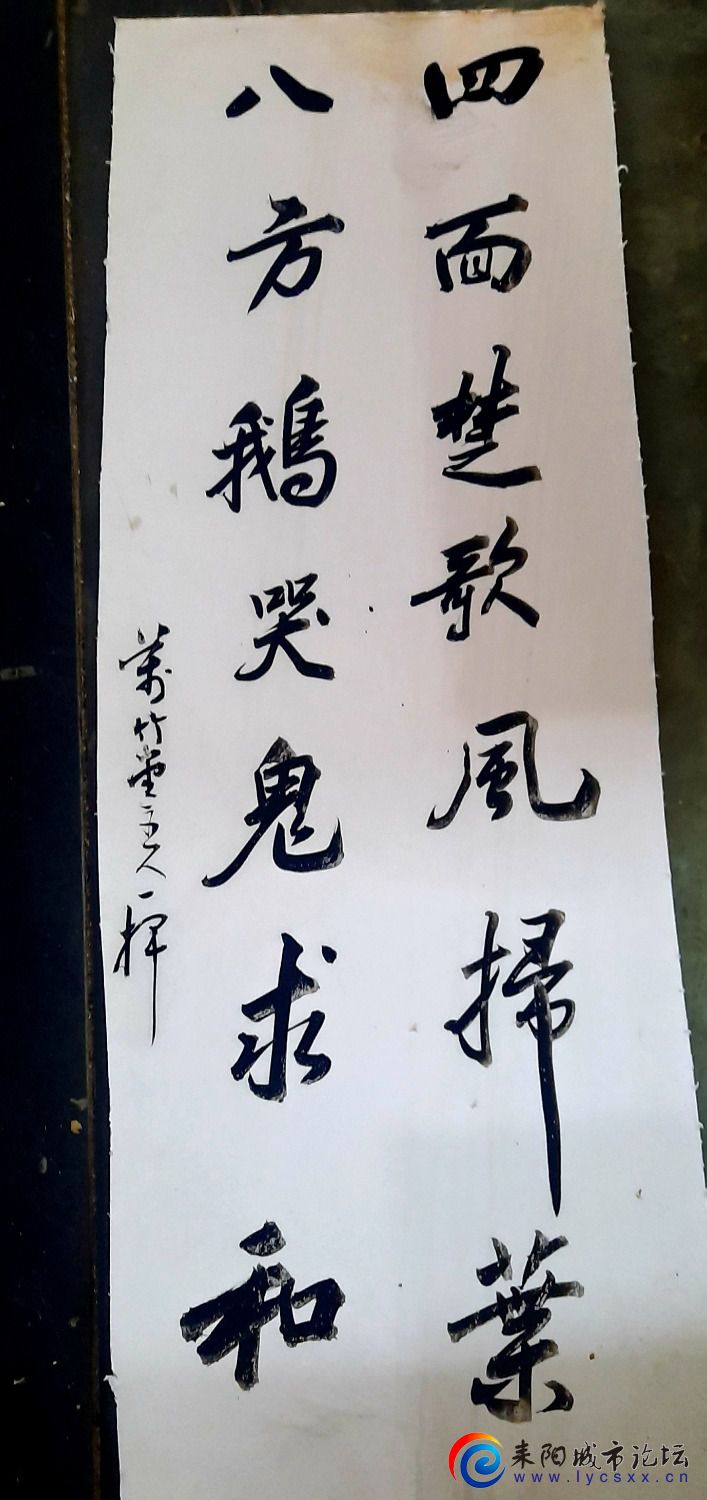 四面楚歌風掃葉
八方鵝哭鬼求和
萬竹堂主人一揮
耒阳城市论坛
www.lycsxx.cn